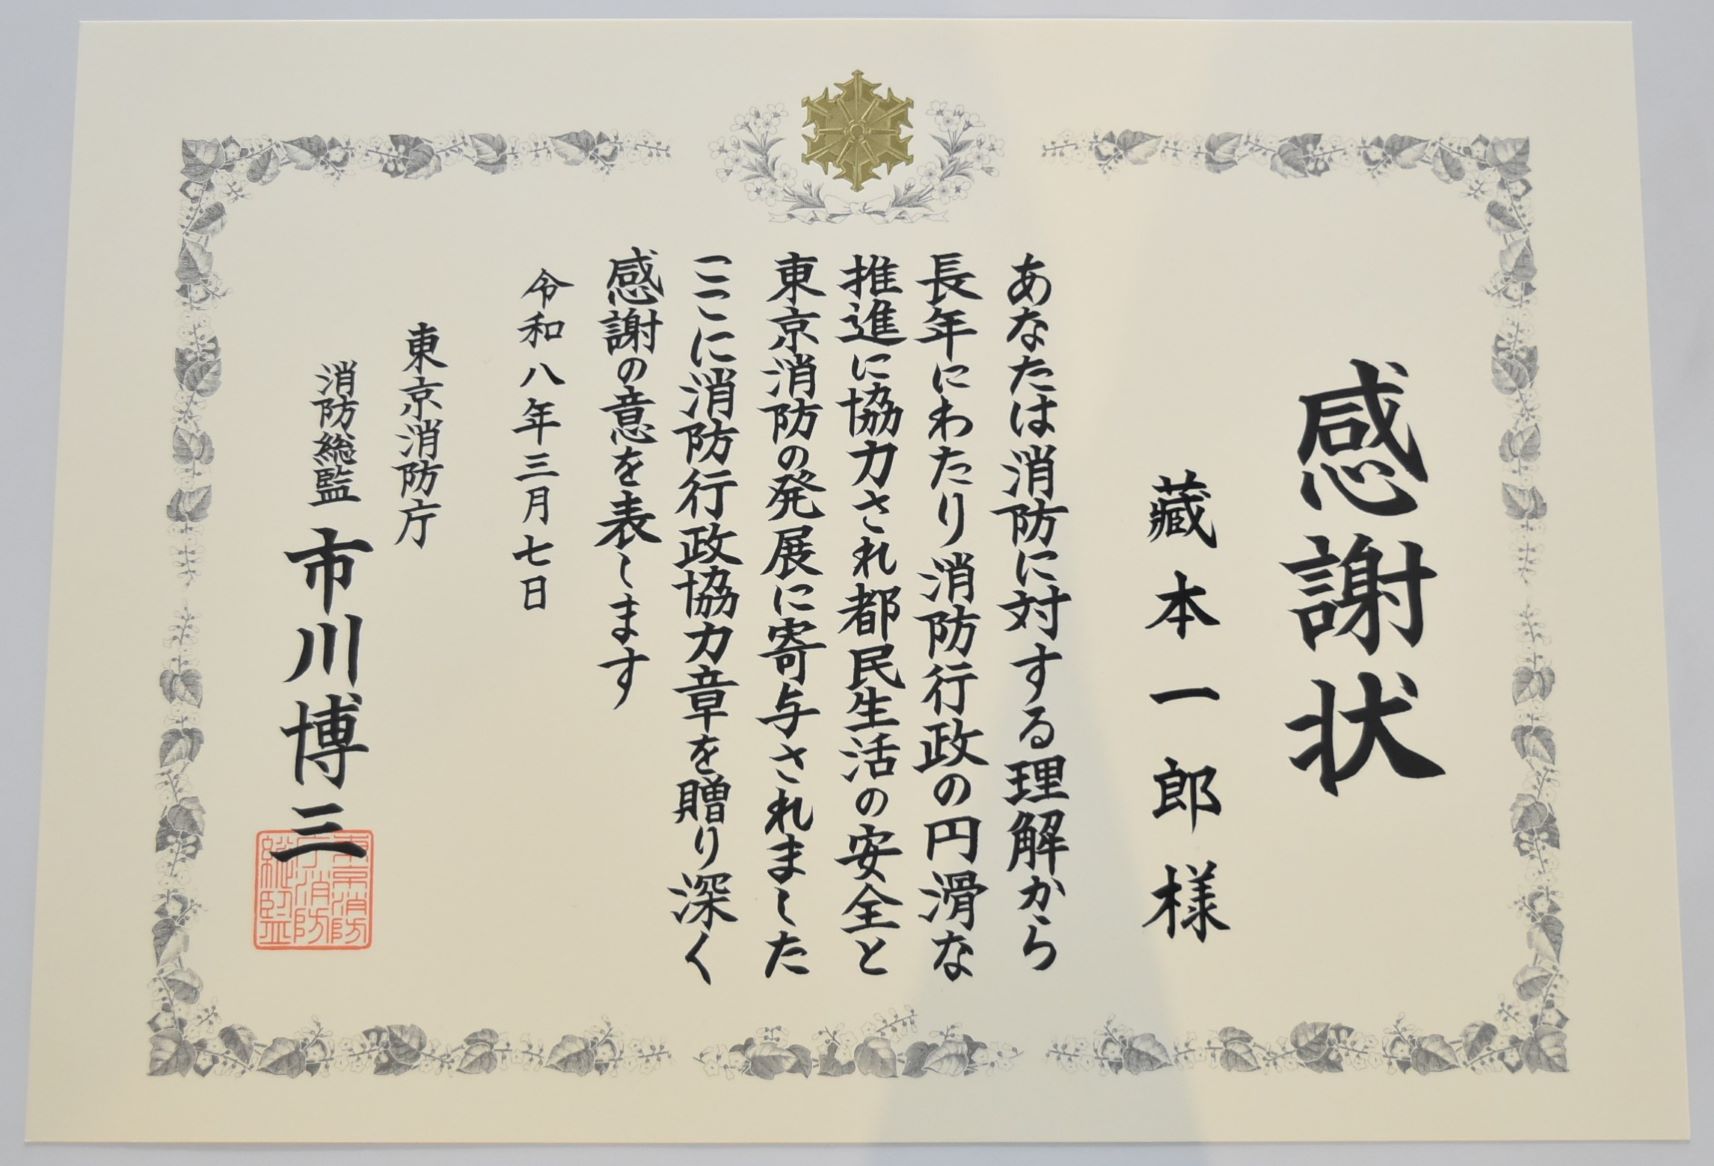 感謝状
藏本一郎様
あなたは消防に対する理解から
長年にわたり消防行政の円滑な
推進に協力され都民生活の安全と
東京消防の発展に寄与されました
ここに消防行政協力章を贈り深く
感謝の意を表します
令和八年三月七日
東京消防庁
消防総監 市川博三
東京消防
庁消防
総監